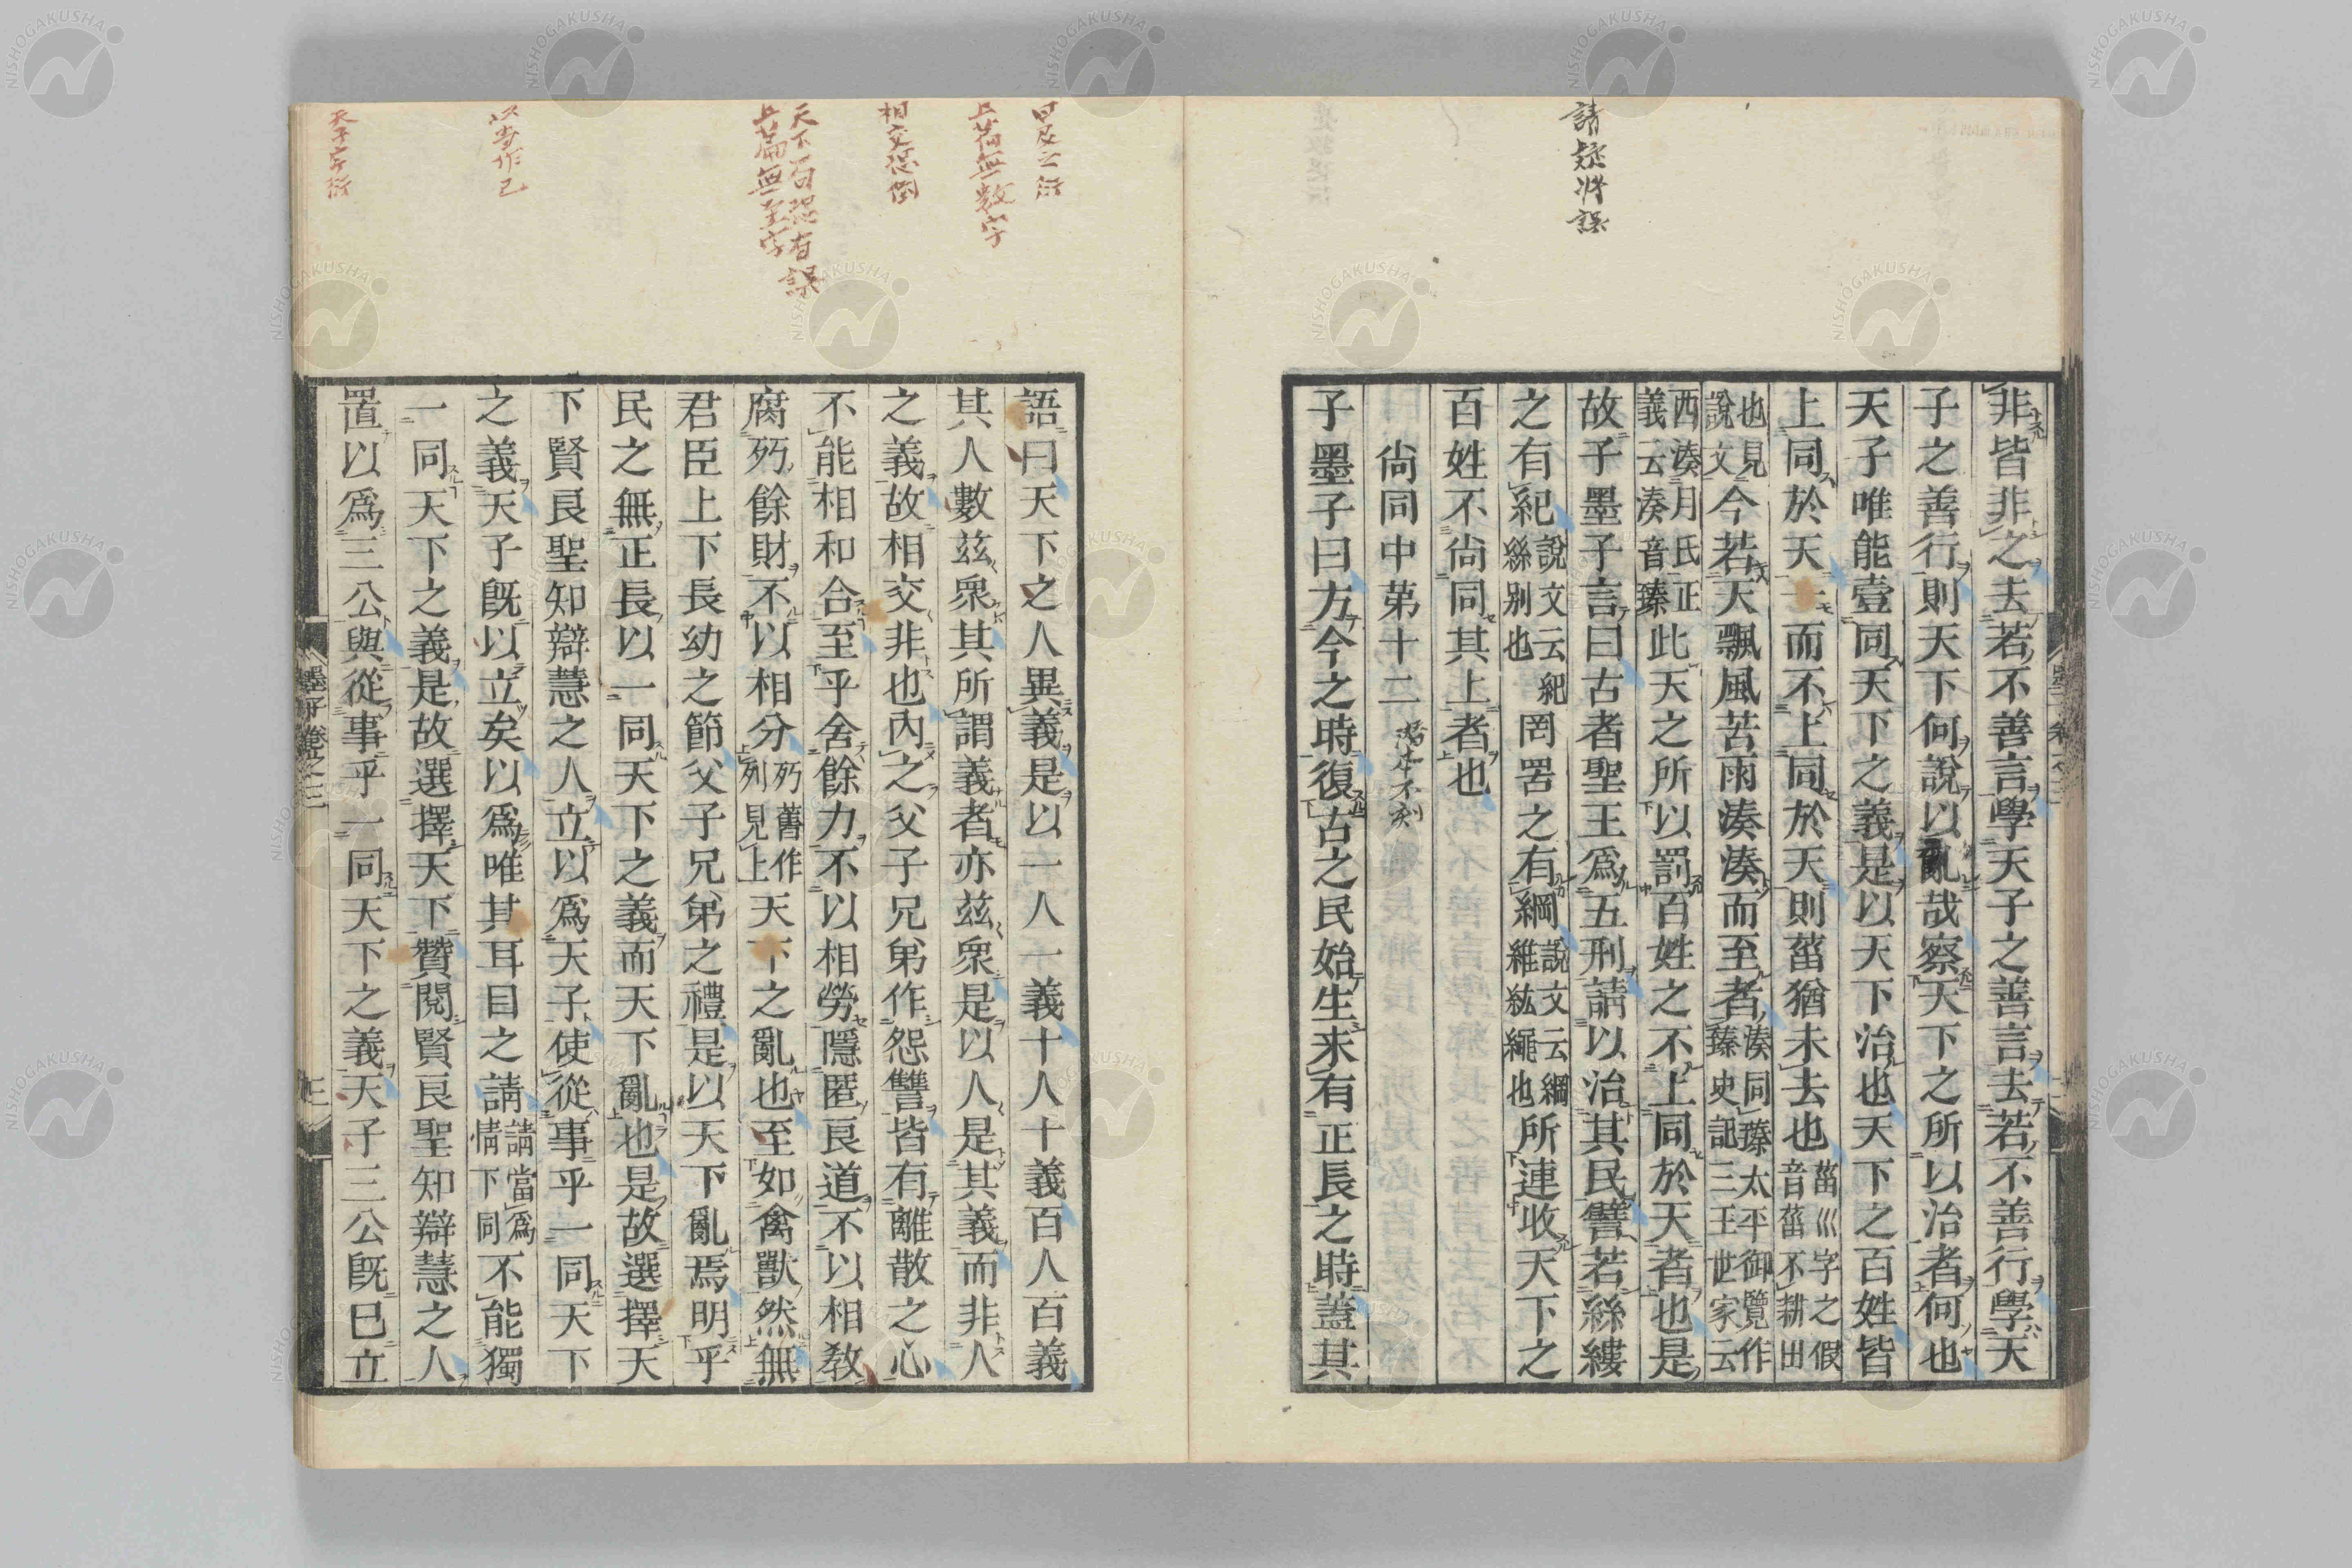 請疑將誤
非皆非之去若不善言學天子之善言去若不善行學天
子之善行則天下何說以亂哉察天下之所以治者何也
天子唯能壹同天下之義是以天下治也天下之百姓皆
上同於天子而不上同於天則菑猶未去也菑巛字之假音菑不耕田
也見說文今若天飄風苦雨湊湊而至者湊同臻太平御覽作臻史記三王世家云
西湊月氏正義云湊音臻此天之所以罰百姓之不上同於天者也是
故子墨子言曰古者聖王爲五刑請以治其民譬若絲縷
之有紀說文云紀絲別也罔罟之有綱說文云綱維紘繩也所連收天下之
百姓不尙同其上者也
尙同中第十二
子墨子曰方今之時復古之民始生未有正長之時蓋其
曰及之衍
上篇無數字
相交恐倒
天下句恐有誤
上篇無至字
以当作已
天子字衍
語曰天下之人異義是以一人一義十人十義百人百義
其人數茲衆其所謂義者亦茲衆是以人是其義而非人
之義故相交非也內之父子兄弟作怨讐皆有離散之心
不能相和合至乎舍餘力不以相勞隱匿良道不以相敎
腐㱙餘財不以相分㱙舊作列見上天下之亂也至如禽獸然無
君臣上下長幼之節父子兄弟之禮是以天下亂焉明乎
民之無正長以一同天下之義而天下亂也是故選擇天
下賢良聖知辯慧之人立以爲天子使從事乎一同天下
之義天子旣以立矣以爲唯其耳目之請請當爲情下同不能獨
一同天下之義是故選擇天下贊閱賢良聖知辯慧之人
置以爲三公與從事乎一同天下之義天子三公旣巳立
墨子卷之三
三